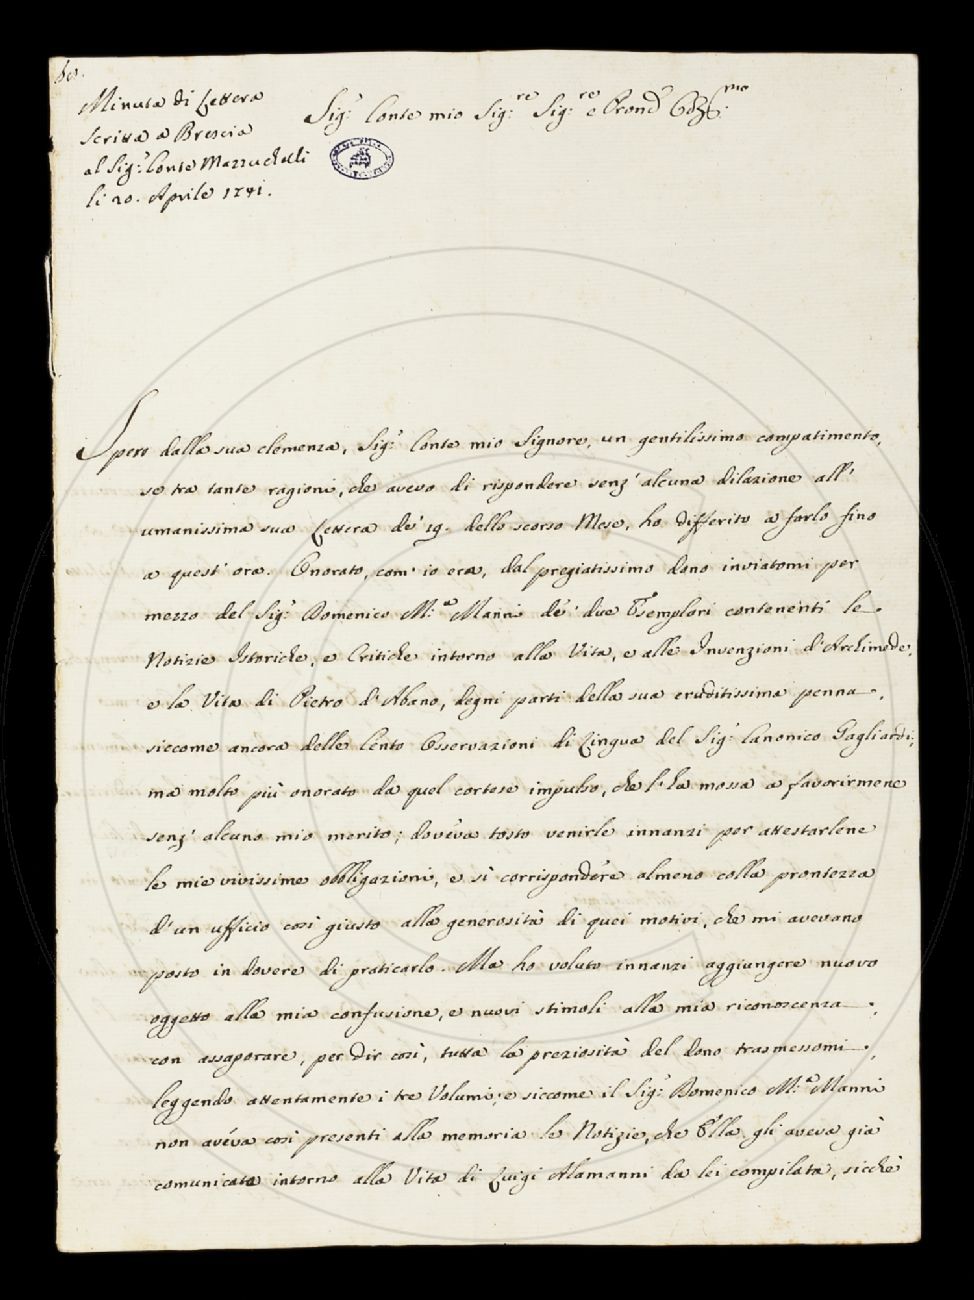 Minuta di Lettera
scritta a Brescia
al Sig.r Conte Mazzuchelli
li 20. Aprile 1741.
Sig.r Conte mio Sig.re Sig.re e Pron̄
Spero dalla sua clemenza, Sig.r Conte mio Signore, un gentilissimo compatimento,
se tra tante ragioni, che avevo di rispondere senz' alcuna dilazione all'
umanissima sua Lettera de' 19. dello scorso Mese, ho differito a farlo fino
a quest' ora. Onorato, com' io era, dal pregiatissimo dono inviatomi per
mezzo del Sig.r Domenico M.a Manni de' due Esemplari contenenti le
Notizie Istoriche, e Critiche intorno alla Vita, e alle Invenzioni d'Archimede,
e la Vita di Pietro d'Abano, degni parti della sua eruditissima penna,
siccome ancora delle Cento Osservazioni di Lingua del Sig.r Canonico Gagliardi;
ma molto più onorato da quel cortese impulso, che l'ha mossa a favorirmene
senz' alcuno mio merito; doveva tosto venirle innanzi per attestarlene
le mie vivissime obbligazioni, e sì corrispondere almeno colla prontezza
d'un ufficio così giusto alla generosità di quei motivi, che mi avevano
posto in dovere di praticarlo. Ma ho voluto innanzi aggiungere nuovo
oggetto alla mia confusione, e nuovi stimoli alla mia riconoscenza;
con assaporare, per dir così, tutta la preziosità del dono trasmessomi,
leggendo attentamente i tre Volumi; e siccome il Sig.r Domenico M.a Manni
non avéva così presenti alla memoria le Notizie, che Ella gli aveva già
comunicate intorno alla Vita di Luigi Alamanni da lei compilata, sicchè